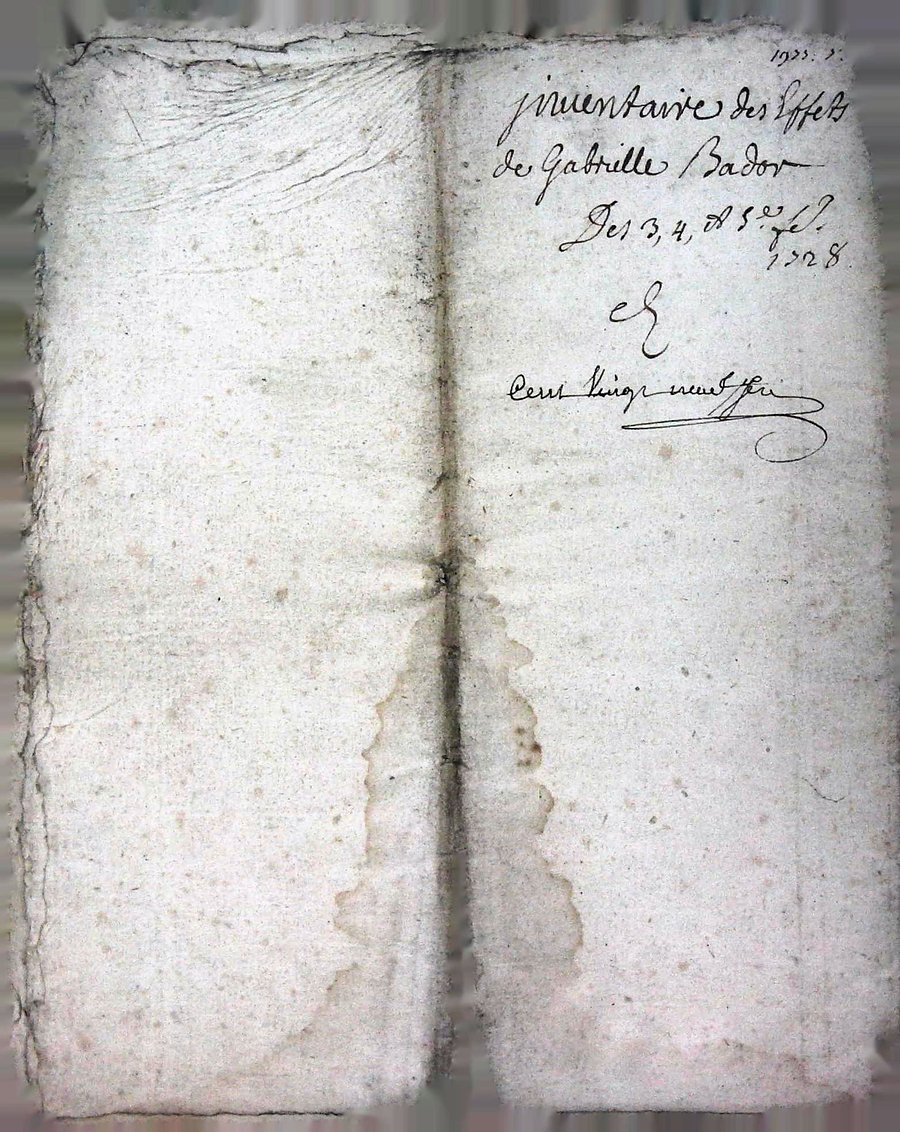 jnuentaire des Effets
de Gabrielle Bador
Des 3, 4, et 5e
1728
Cent Vingt neuf